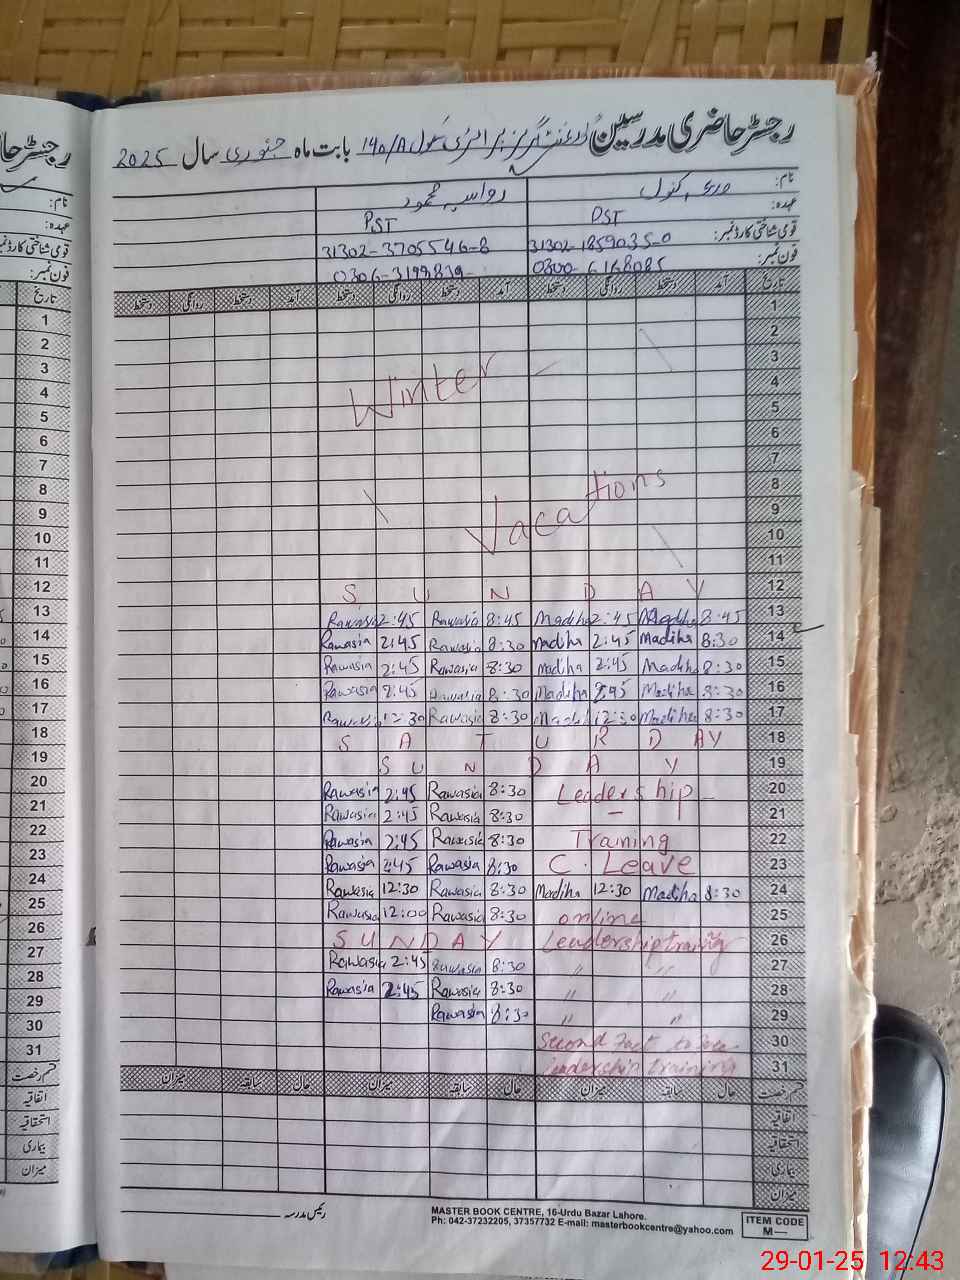 رجسٹر حاضری مدرسین گورنمنٹ گرلز پرائمری سکول 140/A بابت ماہ جنوری سال 2025
نام: مدیحہ کنول رواسیہ محمود
عہدہ: PST PST
قومی شناختی کارڈ نمبر: 31302-1859035-0 31302-3705546-8
فون نمبر: 0306-3199839
تاریخ آمد دستخط روانگی دستخط آمد دستخط روانگی دستخط آمد دستخط روانگی دستخط
1
2
3 Winter
4
5
6
7
8 Vacations
9
10
11
12 SUNDAY
13 8:45 Madiha 2:45 Madiha 8:45 Rawasia 2:45 Rawasia
14 8:30 Madiha 2:45 Madiha 8:30 Rawasia 2:45 Rawasia
15 8:30 Madiha 2:45 Madiha 8:30 Rawasia 2:45 Rawasia
16 8:30 Madiha 2:45 Madiha 8:30 Rawasia 2:45 Rawasia
17 8:30 Madiha 12:30 Madiha 8:30 Rawasia 12:30 Rawasia
18 SATURDAY
19 SUNDAY
20 Leadership 8:30 Rawasia 2:45 Rawasia
21 8:30 Rawasia 2:45 Rawasia
22 Training 8:30 Rawasia 2:45 Rawasia
23 C. Leave 8:30 Rawasia 2:45 Rawasia
24 8:30 Madiha 12:30 Madiha 8:30 Rawasia 12:30 Rawasia
25 online 8:30 Rawasia 12:00 Rawasia
26 Leadership training SUNDAY
27 " " 8:30 Rawasia 2:45 Rawasia
28 " " 8:30 Rawasia 2:45 Rawasia
29 " " 8:30 Rawasia
30 Second
31 leadership training
قسم رخصت حال سابقہ میزان حال سابقہ میزان حال سابقہ میزان
اتفاقیہ
استحقاقیہ
بیماری
میزان
رئیس مدرسہ
MASTER BOOK CENTRE, 16-Urdu Bazar Lahore.
Ph: 042-37232205, 37357732 E-mail: masterbookcentre@yahoo.com
ITEM CODE
M—
رجسٹر حا
نام:
عہدہ:
قومی شناختی کارڈ نمبر
فون نمبر:
تاریخ
1
2
3
4
5
6
7
8
9
10
11
12
13
14
15
16
17
18
19
20
21
22
23
24
25
26
27
28
29
30
31
قسم رخصت
اتفاقیہ
استحقاقیہ
بیماری
میزان
29-01-25 12:43